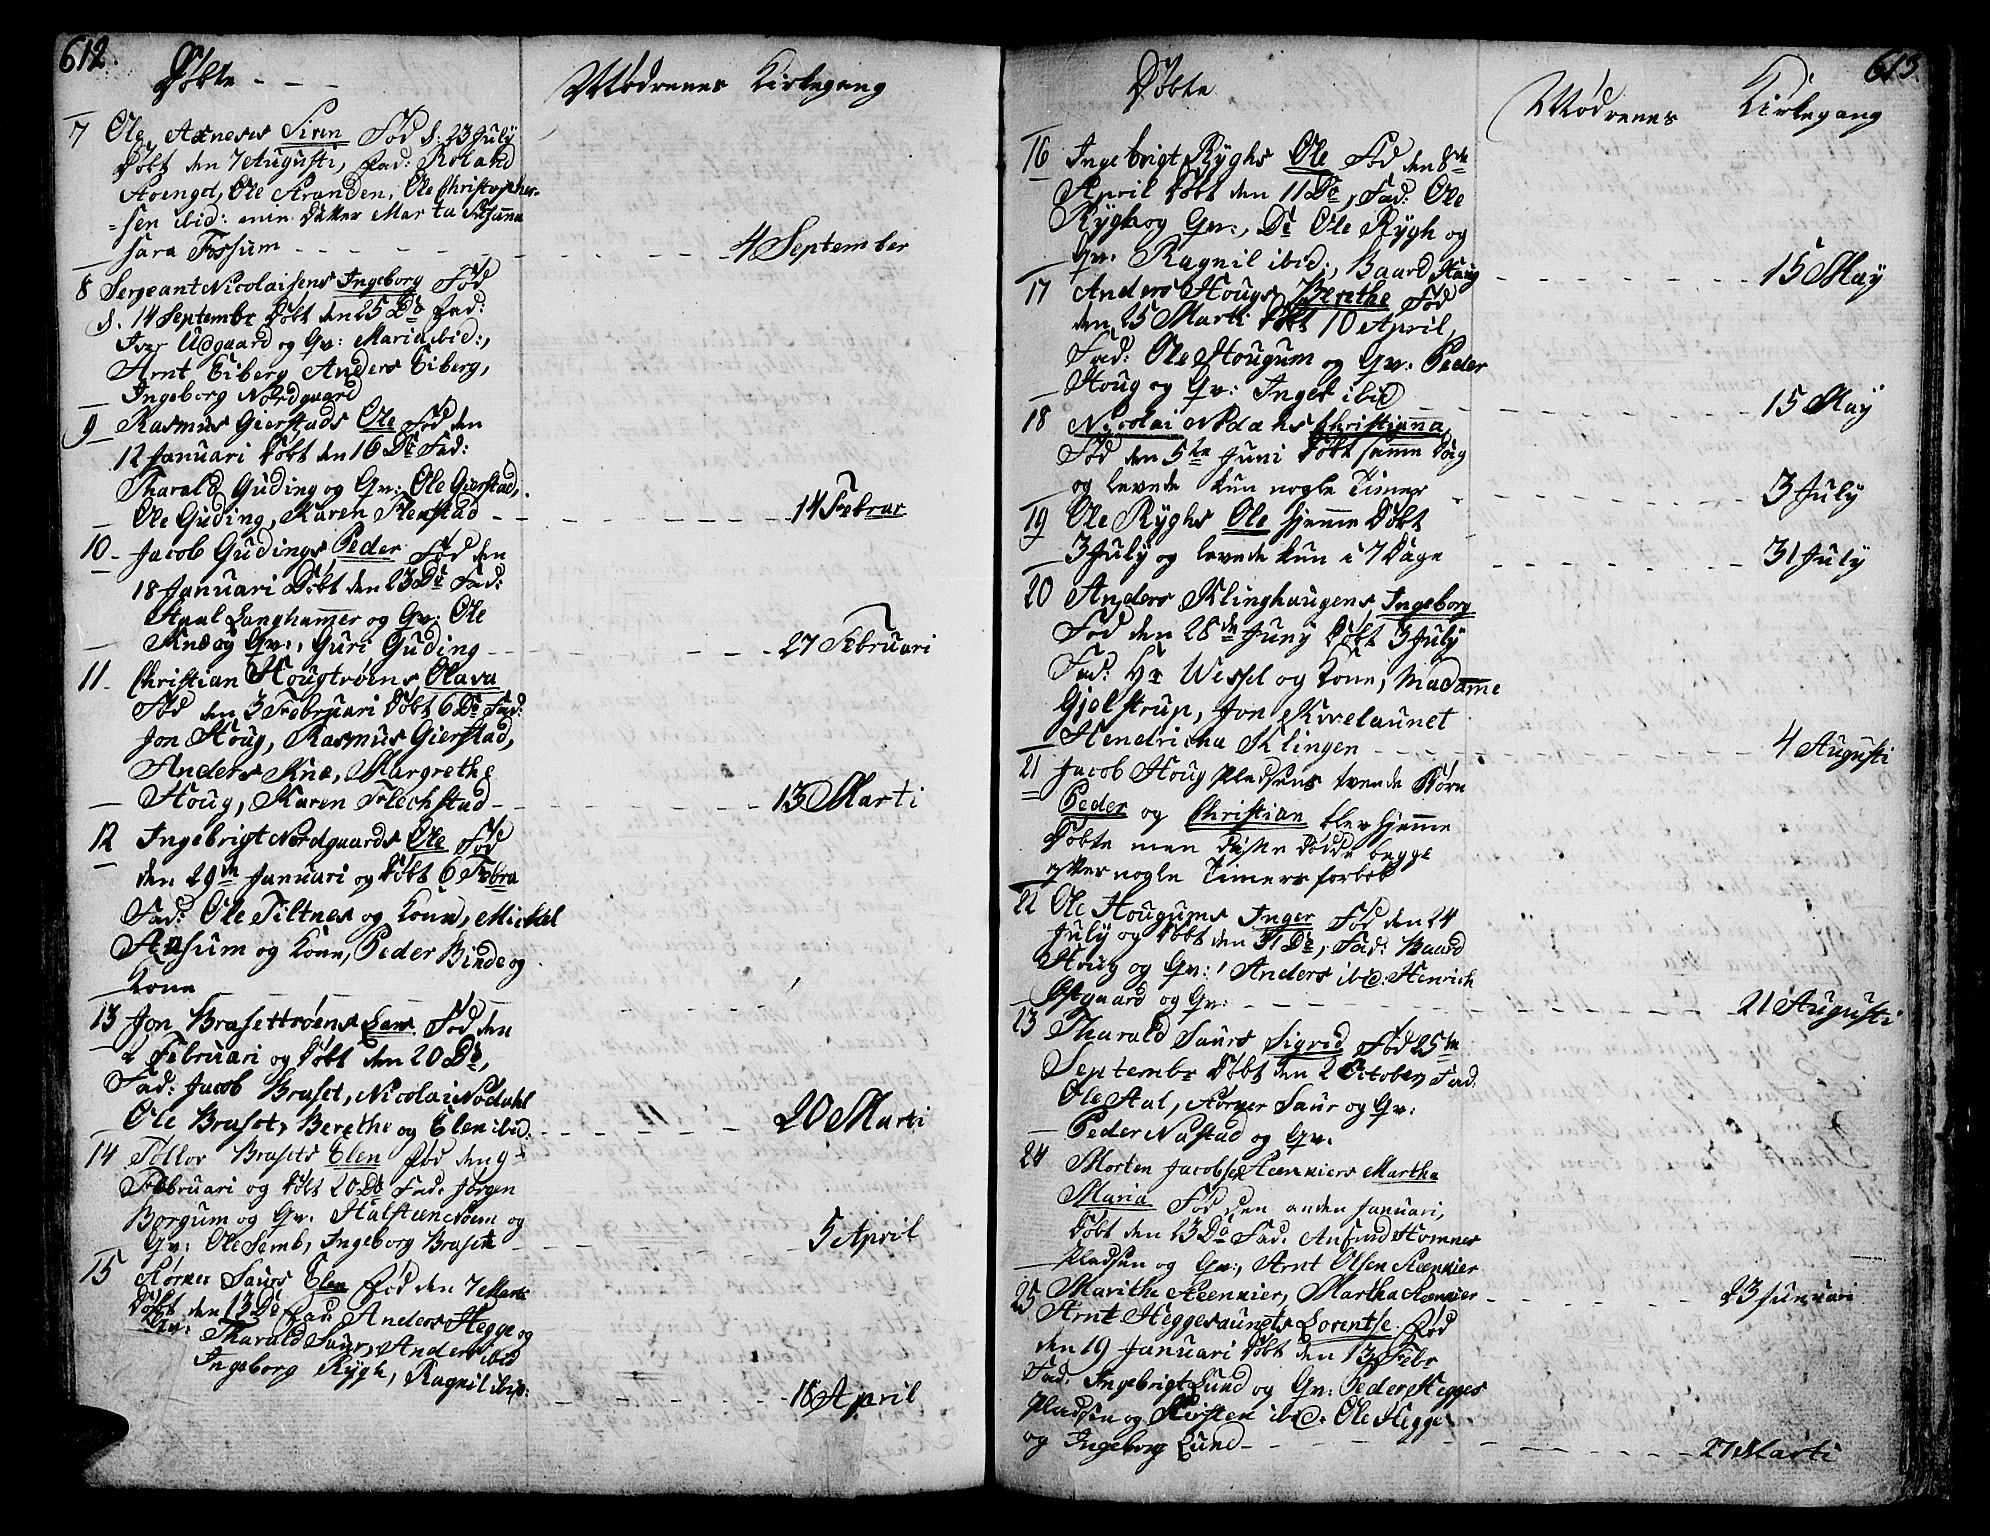 612.
Døbte - - -
Mødrenes Kirkegang
7 Ole Axneses Siren Fød d: 23 July
Døbt den 7 Augusti, Fad: Roland
Avenget, Ole Aranden, Ole Christopher-
-sen ibid: min Datter Marta Susanna
Sara Fossum - - - 4 September
8 Sergeant Nicolaisens Ingeborg Fød
d. 14 Septembr Døbt den 25 Do Fad:
Iver Udgaard og Qv: Maria ibid:,
Arnt Eiberg Anders Eiberg,
Ingeborg Nordgaard
9 Rasmus Gierstads Ole Fød den
12 Januari Døbt den 16 Do Fad:
Tharald Guding og Qv: Ole Gierstad,
Ole Guding, Karen - - - 14 Februar
10 - Jacob Gudings Peder Fød den
18 Januari Døbt den 23 Do Fad:
Langhammer og Qv: Ole
Knæ og Qv:, Guri Guding - - - 27 Februari
11 - Christian Hougtrøens Olava
Fød den 3 Februari Døbt 6 Do Fad:
Jon Houg, Rasmus Gierstad,
Anders Knæ, Margrethe
Houg, Karen Flechstad - - - 13 Marti
12 Ingebrigt Nordgaards Ole Fød
den 29de Januari og Døbt 6 Febra
Fad: Ole Tiltnes og Kone, Mickel
Aasum og Kone, Peder Binde og
Kone - - -
13 Jon Brasettrøens Lars Fød den
2 Februari og Døbt den 20 Do,
Fad: Jacob Braset, Nicolai Nødahl
Ole Braset, Berethe og Elen ibid: - - - 20 Marti
14 Tollov Brasets Elen Fød den 9de
Februari og Døbt 20 Do Fad: Jørgen
Borgum og Qv: Halsteen Noem og
Qv: Ole Semb, Ingeborg Braset - - - 5 April
15 Kørner Saurs Elen Fød den 7 Marti
Døbt den 13 Do Fad: Anders Hegge og
Qv: Tharald Saur, Anders ibid
Ingeborg Rygh, Ragnil ibid: - - - 18 April
613.
Døbte
Mødrenes Kirkegang
16 Ingebrigt Ryghs Ole Fød den 8de
April Døbt den 11 Do, Fad: Ole
Rygh og Qv:, Do Ole Rygh og
Qv: Ragnil ibid:, Baard Houg - - - 15 May
17 Anders Hougs Berethe Fød
den 25 Marti Døbt 10 April
Fad: Ole Hougum og Qv: Peder
Houg og Qv: Inger ibid - - - 15 May
18 Nicolai Nødahls Christianna
Fød den 5te Juni Døbt samme Dag
og levede kun nogle Timer - - - 3 July
19 Ole Ryghs Ole hjemme Døbt
3 July og levede kun i 7 Dage - - - 31 July
20 Anders Klinghaugens Ingeborg
Fød den 28de Juny Døbt 3 July
Fad: Hr Wessel og Kone, Madame
Gjelstrup, Jon Kvelaunet
Hendricha Klingen - - - 4 Augusti
21 Jacob Houg Pladsens tvende Børn
Peder og Christian blev hjemme
Døbte men diske døde begge
efter nogle Timers forløb
22 Ole Hougums Inger Fød den 24
July og Døbt den 31 Do, Fad: Baard
Houg og Qv:, Anders ibid: Henrich
Østgaard og Qv: - - - 21 Augusti
23 Tharald Saurs Sigrid Fød 25de
Septembr Døbt den 2 October, Fad:
Ole Aal, Kørner Saur og Qv:
Peder Nastad og Qv:
24 Morten Jacobsen Martha
Maria Fød den anden Januari,
Døbt den 23 Do Fad: Anfind Homnes
Pladsen og Qv:, Arnt Olsen
Marithe, Martha - - - 23 Januari
25 Arnt Heggesaunets Lorentse Fød
den 19 Januari Døbt den 13 Febr
Fad: Ingebrigt Lund og Qv: Peder Hegges
Pladsen og Kirsten ibid: Ole Hegge
og Ingeborg Lund - - - 27 Marti